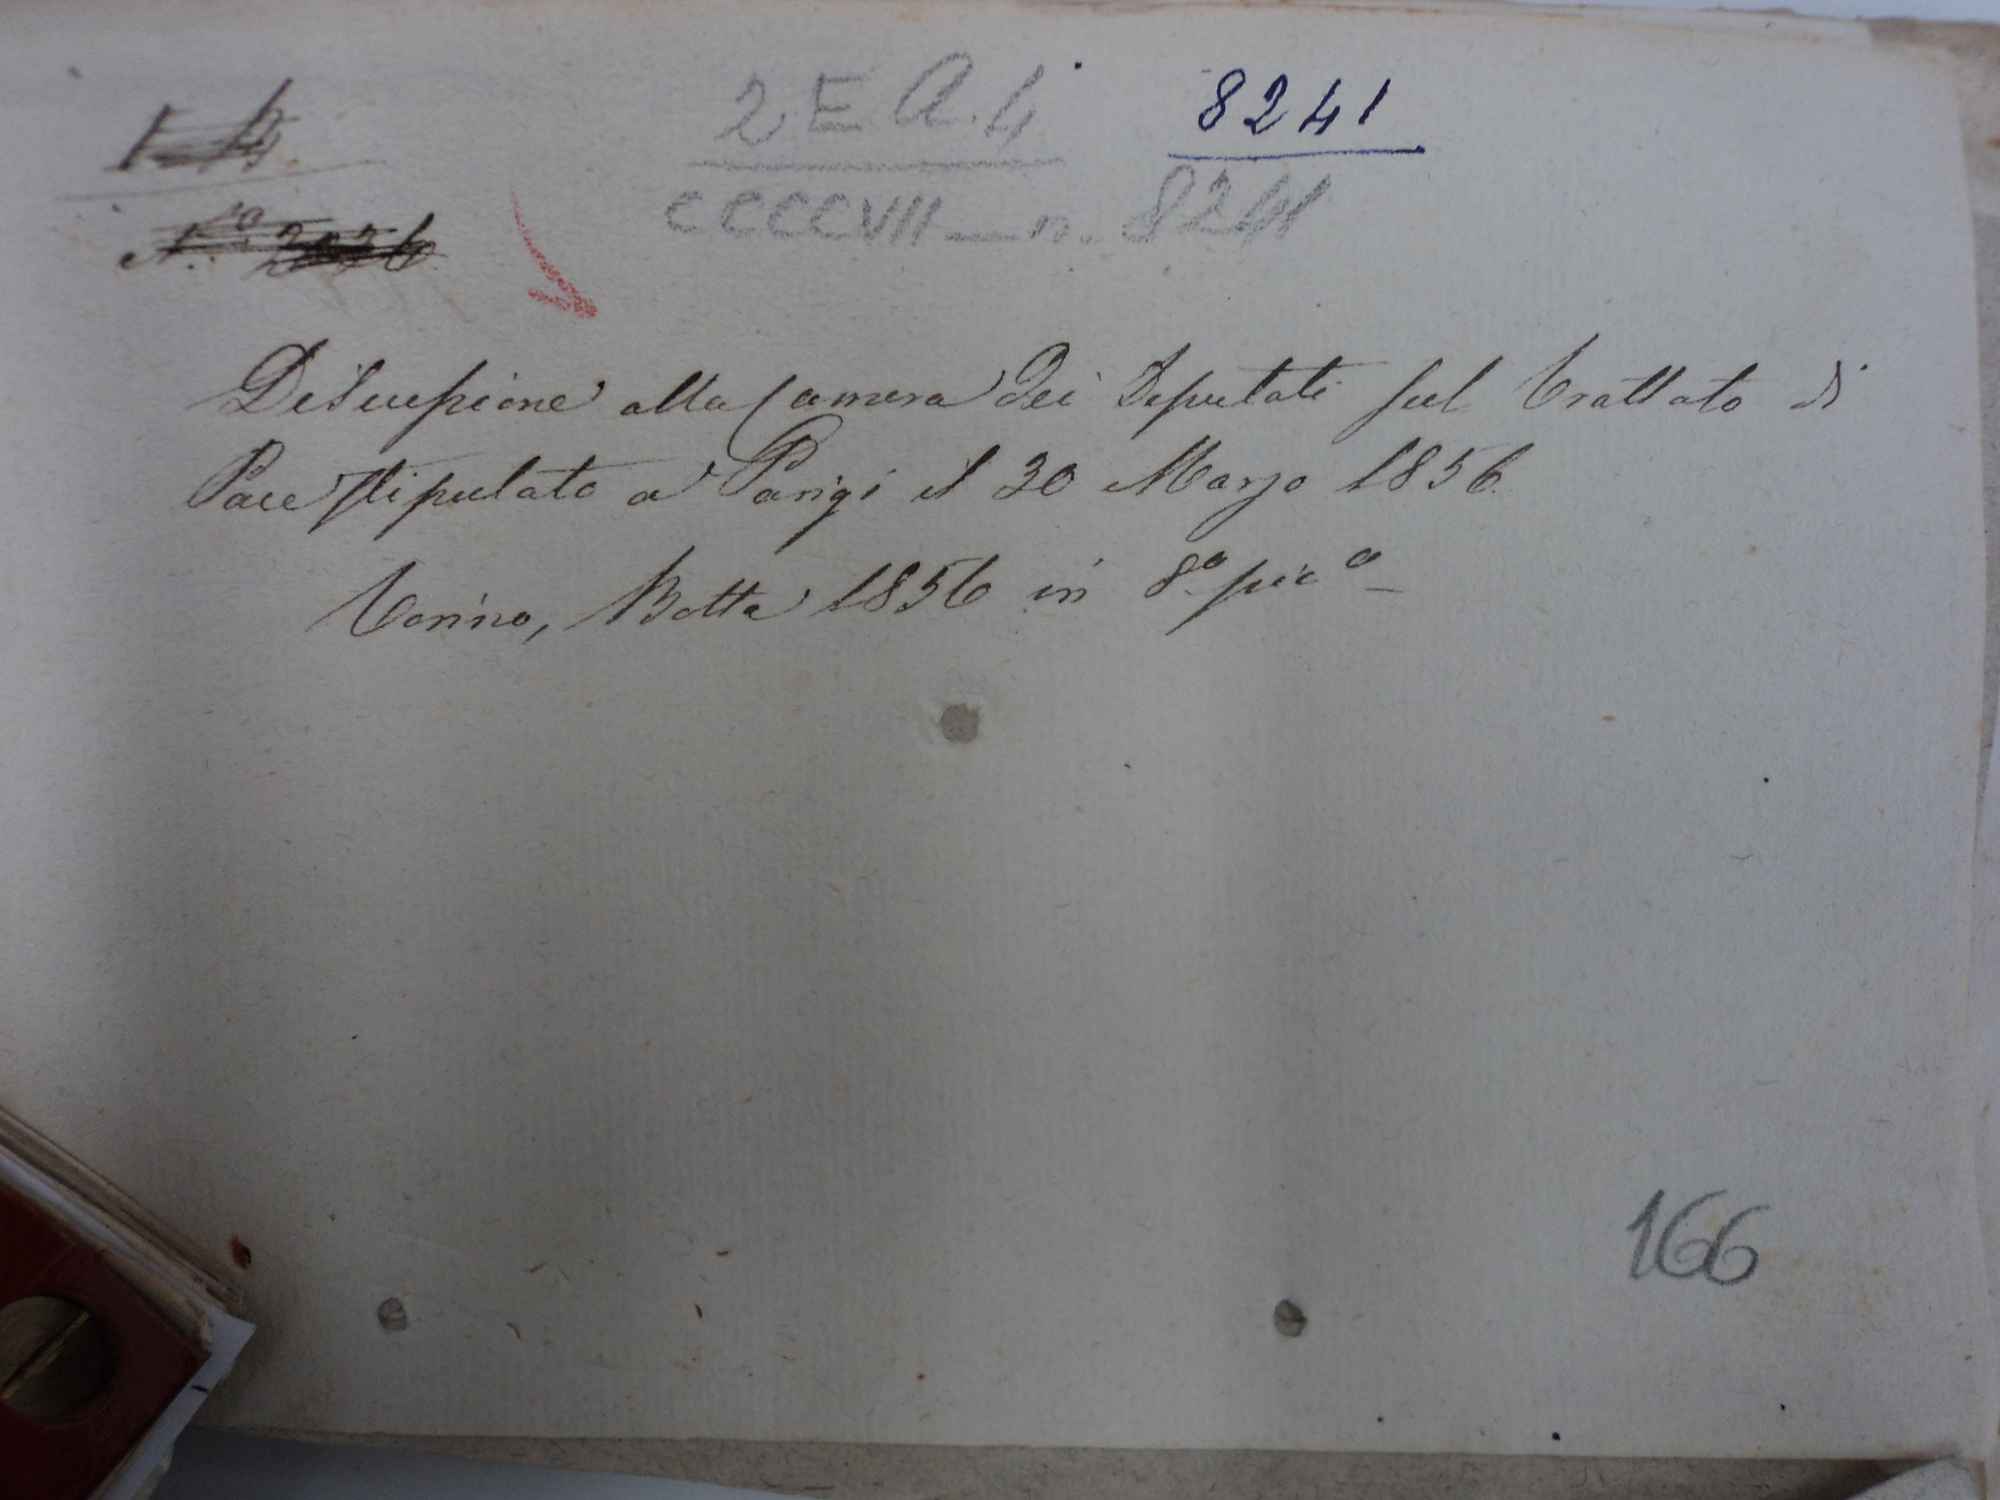 2 E A. 4 8241
CCCCVII — n. 8241
N.ro 2036
Discussione alla Camera dei Deputati sul Trattato di
Pace stipulato a Parigi il 30 Marzo 1856.
Torino, Botta 1856 in 8.o pic.o
166